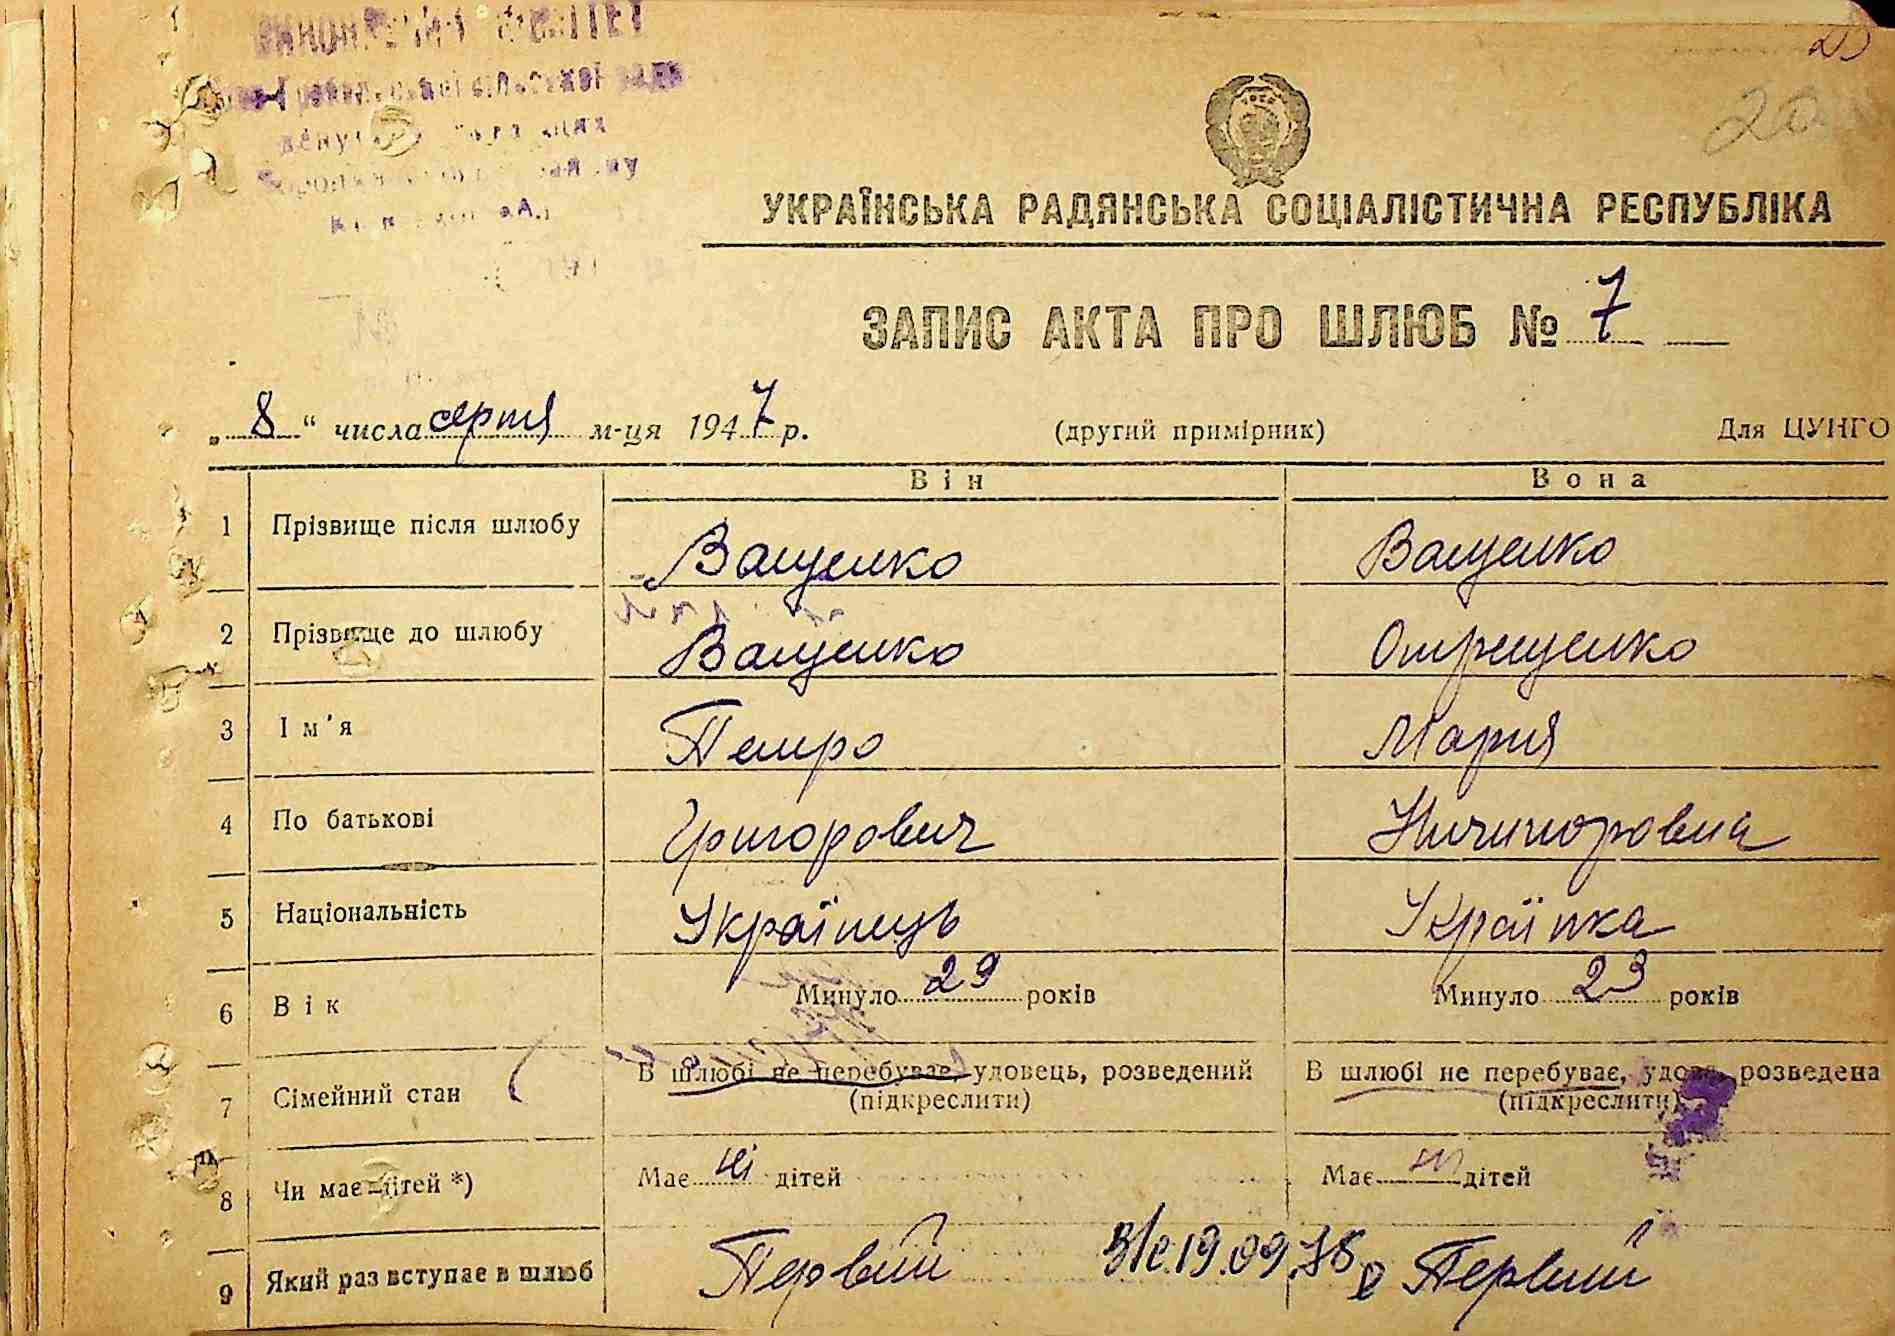 20
УКРАЇНСЬКА РАДЯНСЬКА СОЦІАЛІСТИЧНА РЕСПУБЛІКА
ЗАПИС АКТА ПРО ШЛЮБ № 7
„ 8 “ числа серпня м-ця 1947 р. (другий примірник) Для ЦУНГО
Він Вона
1 Прізвище після шлюбу Ващенко Ващенко
2 Прізвище до шлюбу Ващенко Отрещенко
3 Ім'я Петро Мария
4 По батькові Григорович Ничипоровна
5 Національність Українець Українка
6 Вік Минуло 29 років Минуло 23 років
7 Сімейний стан В шлюбі не перебуває, удовець, розведений В шлюбі не перебуває, удова, розведена
(підкреслити) (підкреслити)
8 Чи має дітей *) Має ні дітей Має ні дітей
9 Який раз вступає в шлюб Первий 19.09.78 Первий